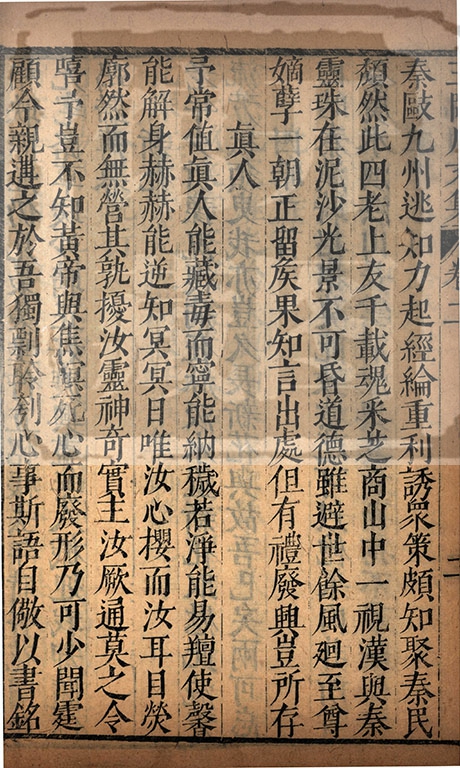 秦敺九州逃知力起經綸重利誘衆策頗知聚秦民
頽然此四老上友千載魂采芝商山中一視漢與秦
靈珠在泥沙光景不可昏道德雖避世餘風廻至尊
嫡孽一朝正留矦果知言出處但有禮廢興豈所存
眞人
予常值眞人能藏毒而寧能納穢若淨能易羶使馨
能解身赫赫能逆知冥冥日唯汝心攖而汝耳目熒
廓然而無營其孰擾汝靈神奇實主汝厥通莫之令
嘻予豈不知黃帝與焦螟死心而廢形乃可少聞霆
顧今親遇之於吾獨剽聆刳心事斯語自儆以書銘